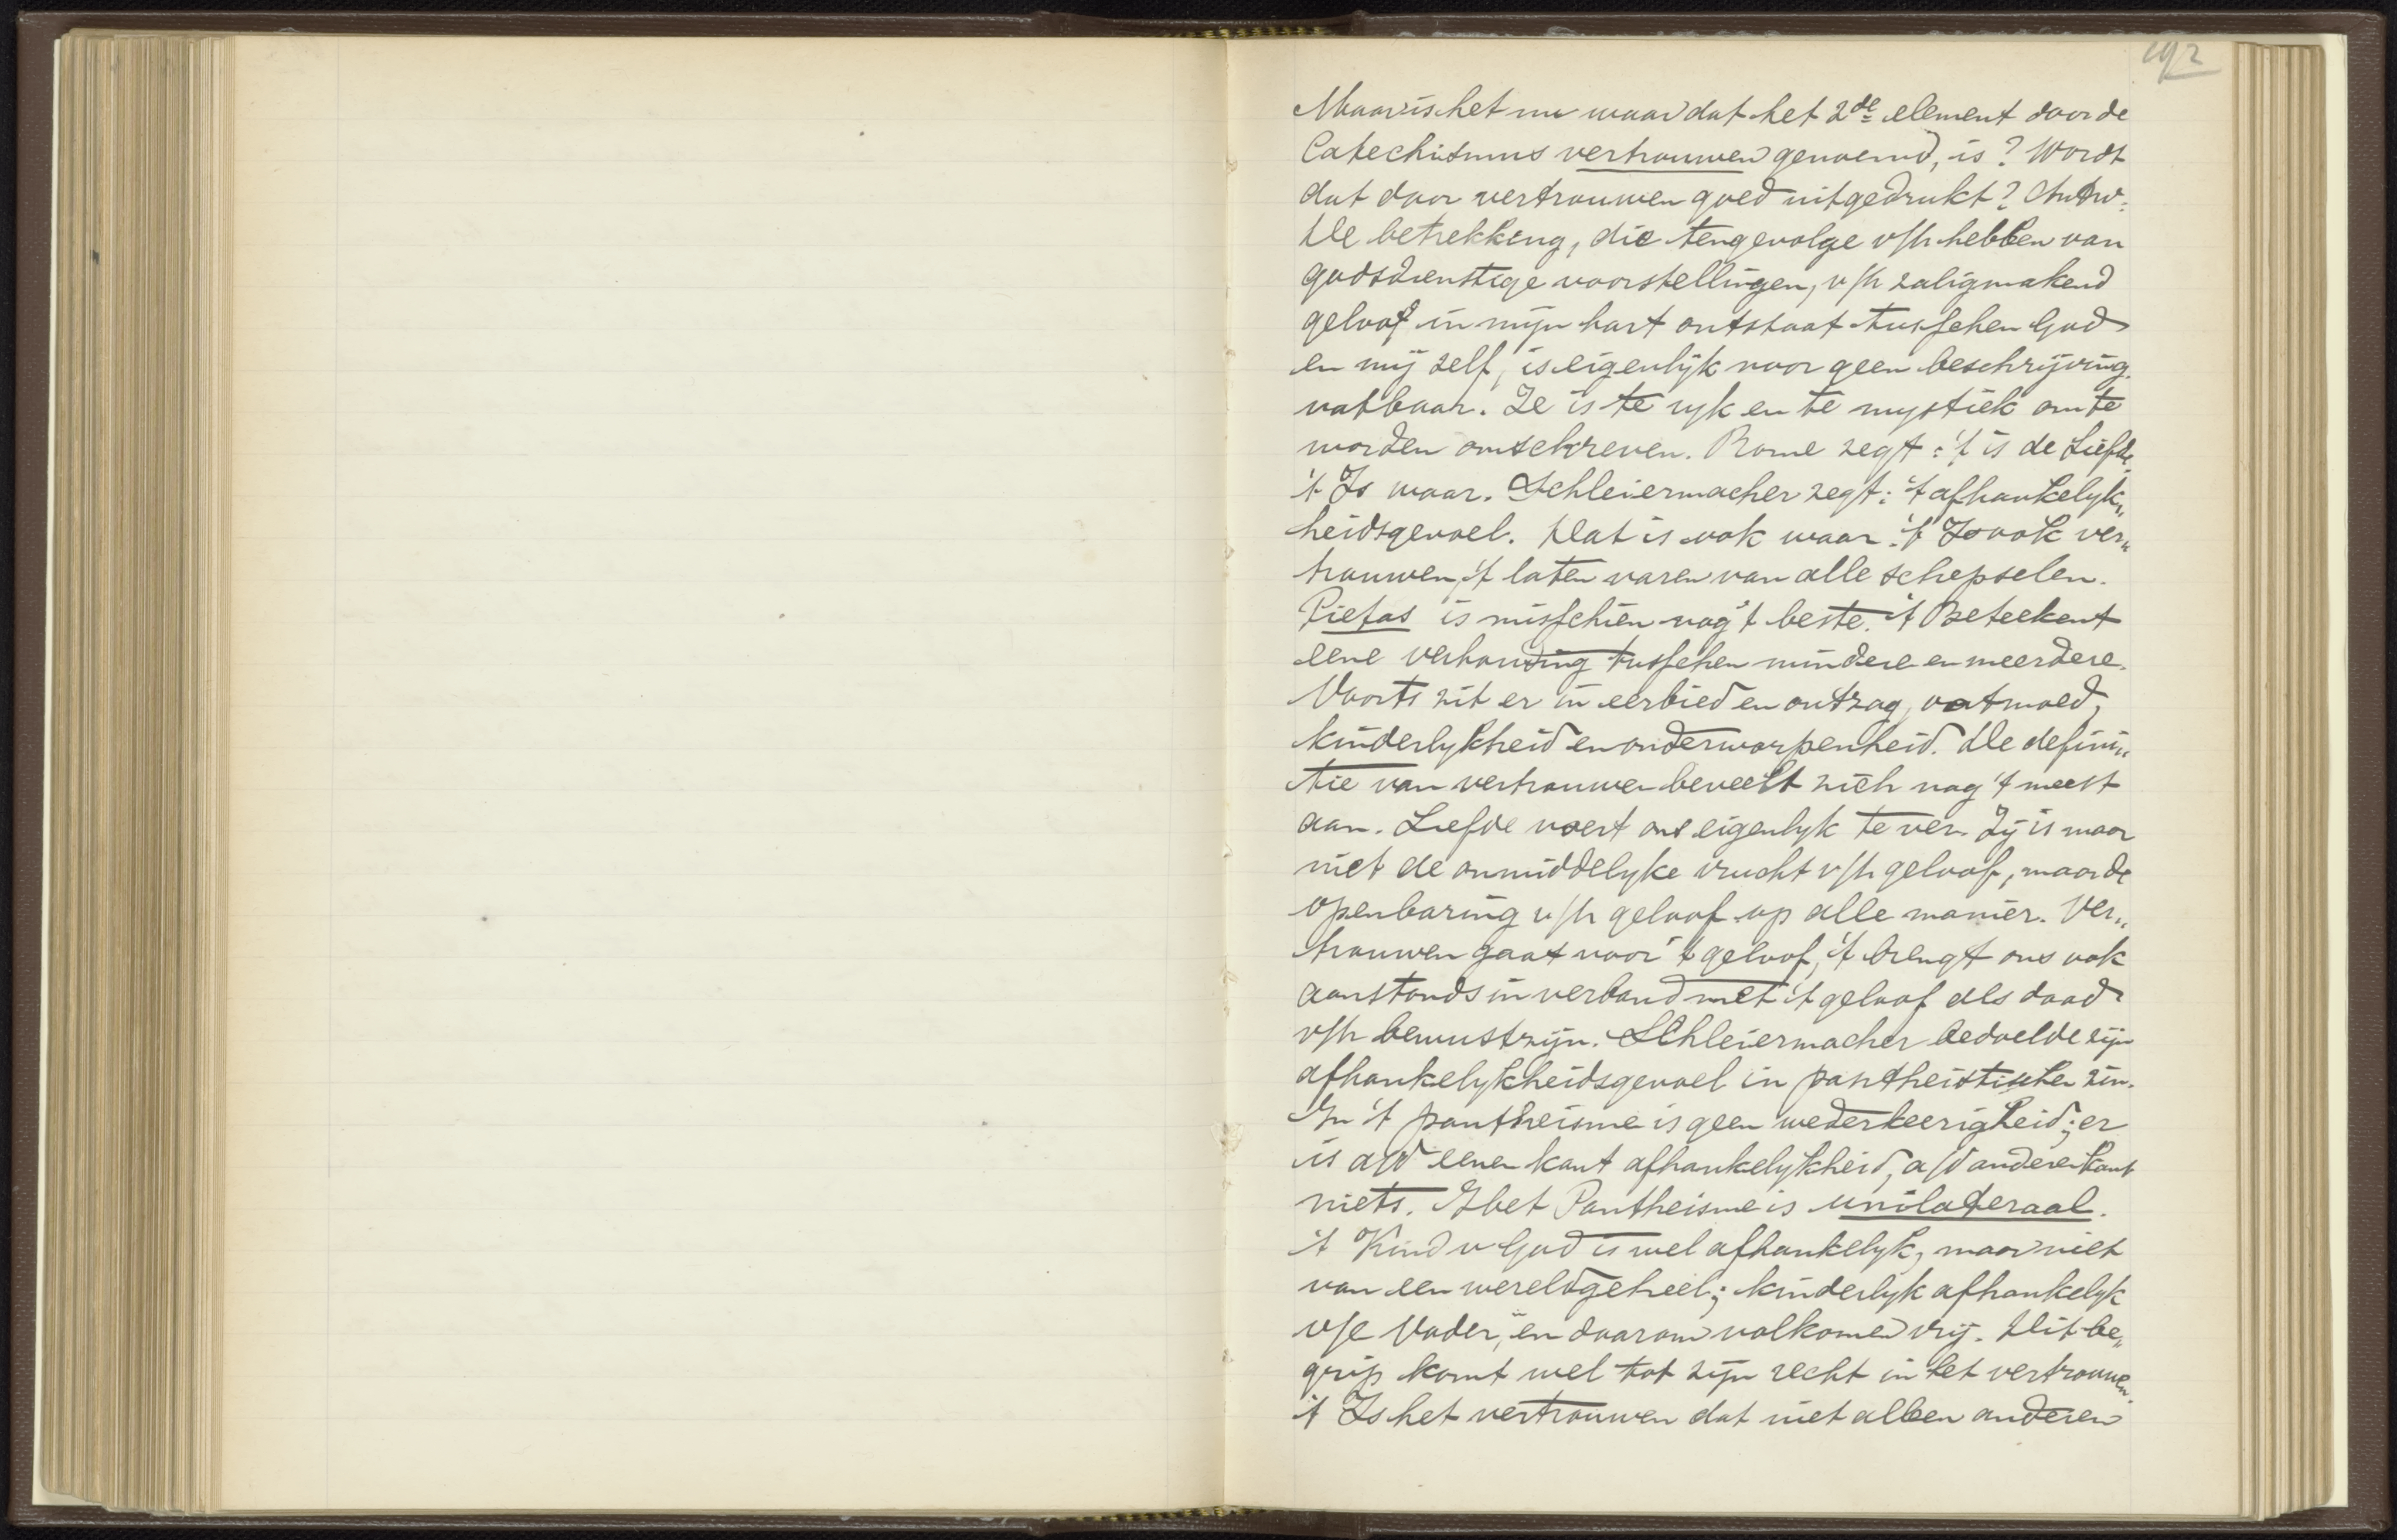 192
Maar is het nu waar dat het 2de element door de
Catechismus vertrouwen genoemd, is? Wordt
dat door vertrouwen goed uitgedrukt? Antw:
De betrekking, die tengevolge v/h hebben van
godsdienstige voorstellingen, v/h zaligmakend
geloof in mijn hart ontstaat tusschen God
en mij zelf, is eigenlijk voor geen beschrijving
vatbaar. Ze is te rijk en te mystiek om te
worden omschreven. Rome zegt: 't is de Liefde.
't Is waar. Schleiermacher zegt: 't afhankelijk„
heidsgevoel. Dat is ook waar. 't Is ook ver„
trouwen, 't laten varen van alle schepselen.
Pietas is misschien nog 't beste. 't Beteekent
eene verhouding tusschen mindere en meerdere.
Voorts zit er in eerbied en ontzag, ootmoed,
kinderlykheid en onderworpenheid. De defini„
tie van vertrouwen beveelt zich nog 't meest
aan. Liefde voert ons eigenlyk te ver. Zij is maar
niet de onmiddelyke vrucht v/h geloof, maar de
openbaring v/h geloof op alle manier. Ver„
trouwen gaat voor 't geloof, 't brengt ons ook
aanstonds in verband met 't geloof als daad
v/h bewustzijn. Schleiermacher bedoelde zijn
afhankelykheidsgevoel in pantheistischen zin.
In 't pantheisme is geen wederkeerigheid; er
is a/d eenen kant afhankelykheid, a/d anderen kant
niets. Het Pantheisme is unilateraal.
't Kind v God is wel afhankelyk, maar niet
van een wereldgeheel; kinderlyk afhankelyk
v/e Vader, en daarom volkomen vrij. Dit be„
grip komt wel tot zijn recht in het vertrouwen.
't Is het vertrouwen dat niet alleen anderen